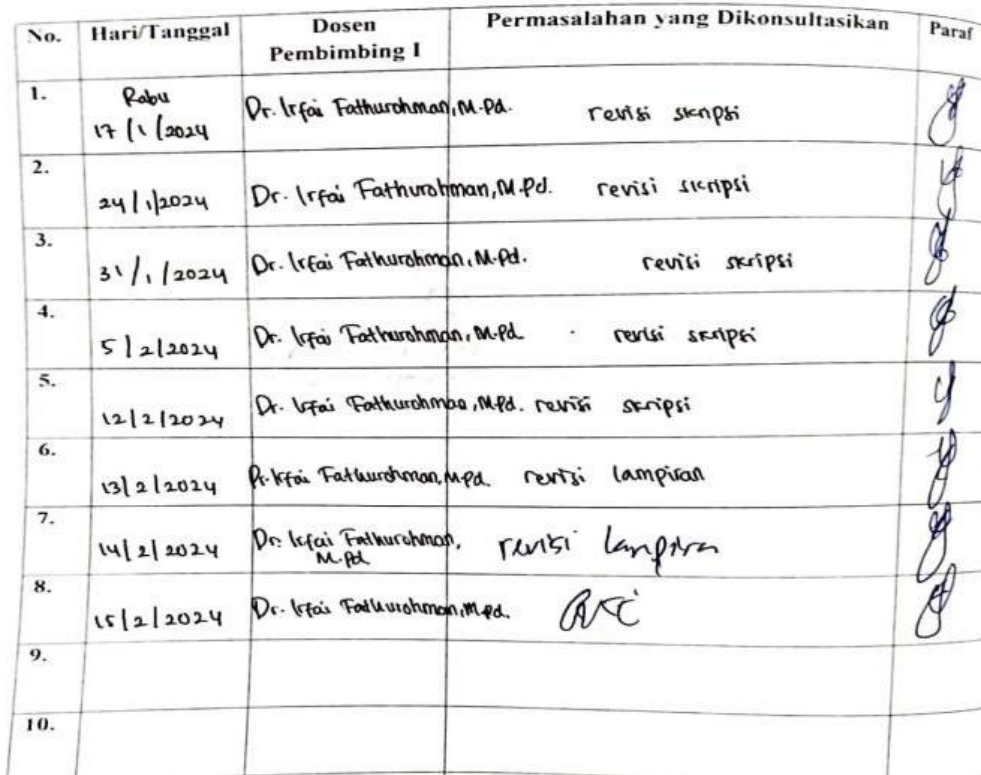 No. Hari/Tanggal Dosen Pembimbing I Permasalahan yang Dikonsultasikan Paraf
1. Rabu
17/1/2024 Dr. Irfai Fathurohman, M.Pd. revisi skripsi
2. 24/1/2024 Dr. Irfai Fathurohman, M.Pd. revisi skripsi
3. 31/1/2024 Dr. Irfai Fathurohman, M.Pd. revisi skripsi
4. 5/2/2024 Dr. Irfai Fathurohman, M.Pd. revisi skripsi
5. 12/2/2024 Dr. Irfai Fathurohman, M.Pd. revisi skripsi
6. 13/2/2024 Dr. Irfai Fathurohman, M.Pd. revisi lampiran
7. 14/2/2024 Dr. Irfai Fathurohman, revisi lampiran
M.Pd
8. 15/2/2024 Dr. Irfai Fathurohman, M.Pd.
9.
10.